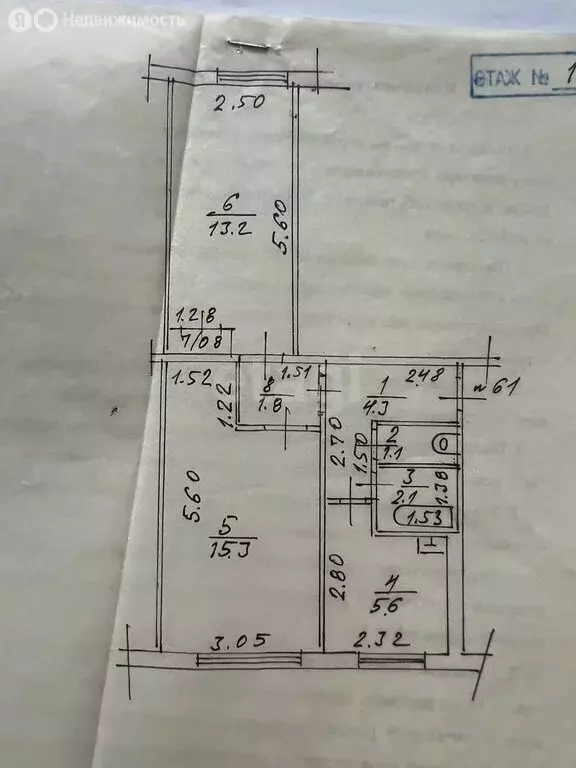 Я Недвижимость
ЭТАЖ № 1
2.50
6
13.2
5.60
1.28
7/0.8
1.52
1.22
8
1.8
1.51
1
4.3
2.48
п 61
2.70
1.50
2
1.1
3
2.1
1.38
1.53
5.60
5
15.3
2.80
4
5.6
3.05
2.32